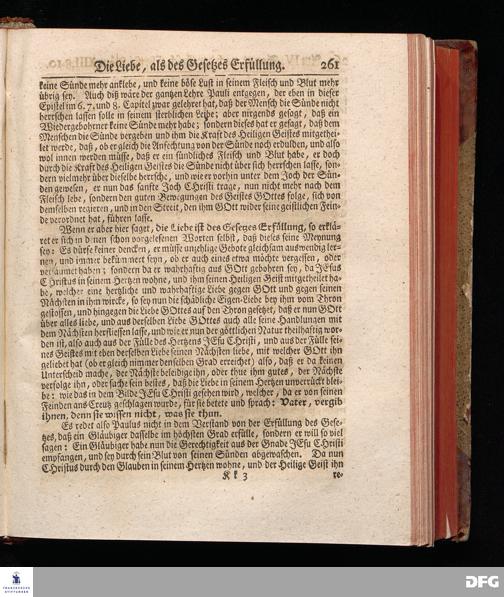 Die Liebe, als des Gesetzes Erfüllung. 261
keine Sünde mehr anklebe, und keine böse Lust in seinem Fleisch und Blut mehr
übrig sey. Auch diß wäre der gantzen Lehre Pauli entgegen, der eben in dieser
Epistel im 6. 7. und 8. Capitel zwar gelehret hat, daß der Mensch die Sünde nicht
herrschen lassen solle in seinem sterblichen Leibe; aber nirgends gesagt, daß ein
Wiedergebohrner keine Sünde mehr habe; sondern dieses hat er gesagt, daß dem
Menschen die Sünde vergeben und ihm die Kraft des Heiligen Geistes mitgethei-
let werde, daß, ob er gleich die Anfechtung von der Sünde noch erdulden, und also
wol innen werden müsse, daß er ein sündliches Fleisch und Blut habe, er doch
durch die Kraft des Heiligen Geistes die Sünde nicht über sich herrschen lasse, son-
dern vielmehr über dieselbe herrsche, und wie er vorhin unter dem Joch der Sün-
den gewesen, er nun das sanfte Joch CHristi trage, nun nicht mehr nach dem
Fleisch lebe, sondern den guten Bewegungen des Geistes GOttes folge, sich von
demselben regieren, und in den Streit, den ihm GOtt wider seine geistlichen Fein-
de verordnet hat, führen lasse.
Wenn er aber hier saget, die Liebe ist des Gesetzes Erfüllung, so erklä-
ret er sich in denen schon vorgelesenen Worten selbst, daß dieses seine Meynung
sey: Es dürfe keiner dencken, er müsse unzehlige Gebote gleichsam auswendig ler-
nen, und immer bekümmert seyn, ob er auch eines etwa möchte vergessen, oder
versäumet haben; sondern da er wahrhaftig aus GOtt gebohren sey, da JEsus
CHristus in seinem Hertzen wohne, und ihm seinen Heiligen Geist mitgetheilet ha-
be, welcher eine hertzliche und wahrhaftige Liebe gegen GOtt und gegen seinen
Nächsten in ihm wircke, so sey nun die schädliche Eigen-Liebe bey ihm vom Thron
gestossen, und hingegen die Liebe GOttes auf den Thron gesetzet, daß er nun GOtt
über alles liebe, und aus derselben Liebe GOttes auch alle seine Handlungen mit
dem Nächsten herfliessen lasse, und wie er nun der göttlichen Natur theilhaftig wor-
den ist, also auch aus der Fülle des Hertzens JEsu CHristi, und aus der Fülle sei-
nes Geistes mit eben derselben Liebe seinen Nächsten liebe, mit welcher GOtt ihn
geliebet hat (ob er gleich nimmer denselben Grad erreichet) also, daß er da keinen
Unterscheid mache, der Nächste beleidige ihn, oder thue ihm gutes, der Nächste
verfolge ihn, oder suche sein bestes, daß die Liebe in seinem Hertzen unverrückt blei-
be: wie das in dem Bilde JEsu CHristi gesehen wird, welcher, da er von seinen
Feinden ans Creutz geschlagen wurde, für sie betete und sprach: Vater, vergib
ihnen, denn sie wissen nicht, was sie thun.
Es redet also Paulus nicht in dem Verstand von der Erfüllung des Gese-
tzes, daß ein Gläubiger dasselbe im höchsten Grad erfülle, sondern er will so viel
sagen: Ein Gläubiger habe nun die Gerechtigkeit aus der Gnade JEsu CHristi
empfangen, und sey durch sein Blut von seinen Sünden abgewaschen. Da nun
CHristus durch den Glauben in seinem Hertzen wohne, und der Heilige Geist ihn
K k 3 re-
FRANCKESCHE
STIFTUNGEN
DFG